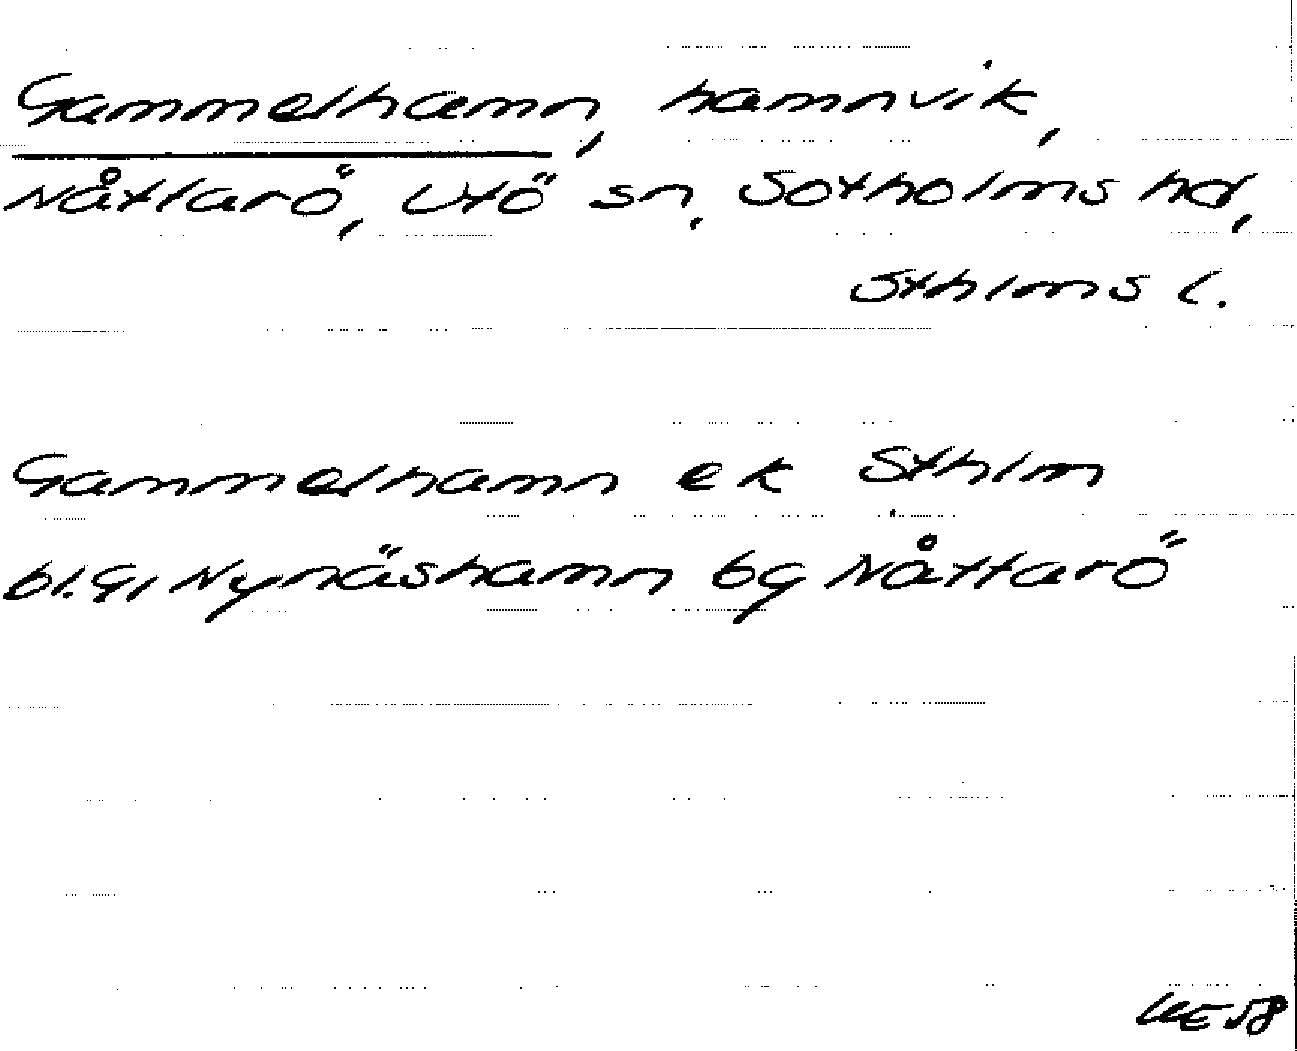 Gammelhamn, hamnvik,
Nåttarö, Utö sn, Sotholms hd,
Sthlms l.
Gammelhamn ek Sthlm
bl. 91 Nynäshamn bg Nåttarö
58